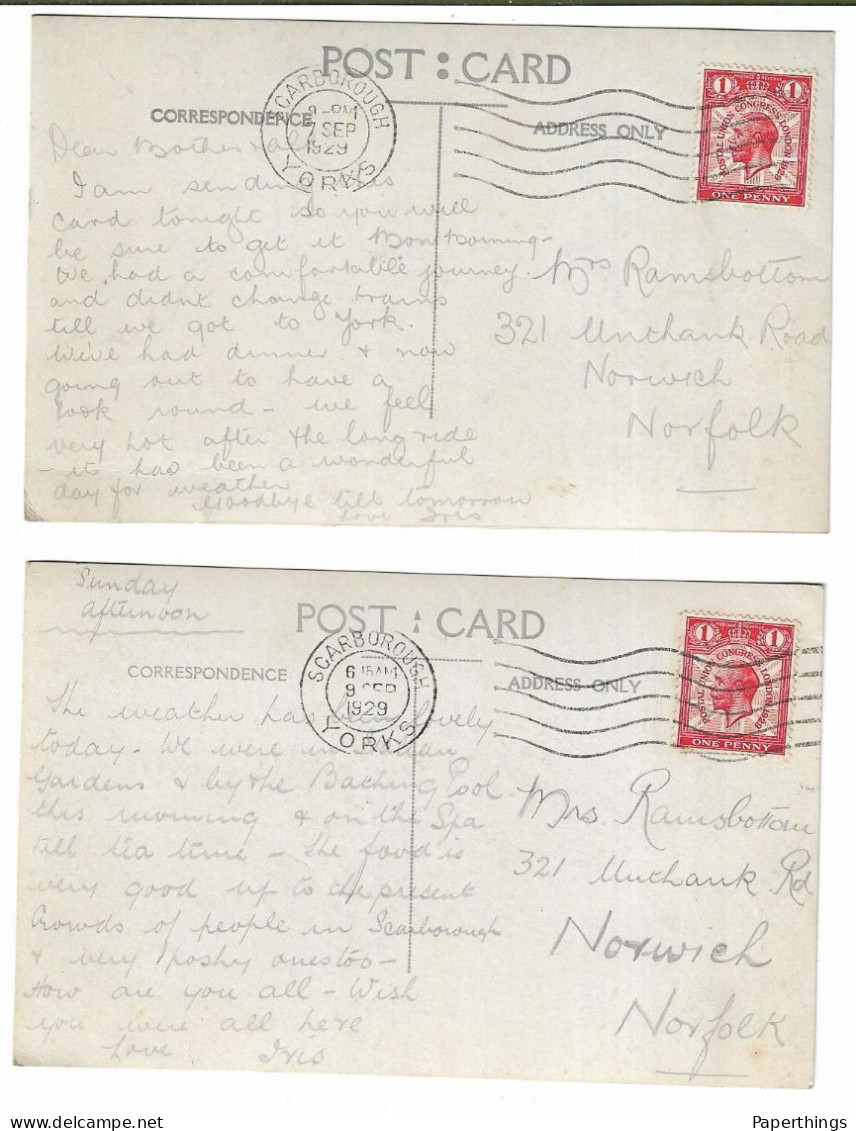 POST : CARD
SCARBOROUGH
8-PM
7 SEP
1929
YORKS
CORRESPONDENCE
ADDRESS ONLY
1 1
POSTAL UNION CONGRESS LONDON 1929
ONE PENNY
Dear Mother & all
I am sending this
card tonight so you will
be sure to get it Mon Morning -
We had a comfortable journey
and didnt change trains
till we got to York.
We've had dinner & now
going out to have a
look round - we feel
very hot after the long ride
its has been a wonderful
day for weather
Goodbye till tomorrow
Love Iris
Mrs Ramsbottom
321 Unthank Road
Norwich
Norfolk
Sunday
afternoon
POST : CARD
SCARBOROUGH
6 15AM
9 SEP
1929
YORKS
CORRESPONDENCE
ADDRESS ONLY
1 1
POSTAL UNION CONGRESS LONDON 1929
ONE PENNY
The weather has been lovely
today - We were in Italian
Gardens & by the Bathing Pool
this morning & on the Spa
till tea time - The food is
very good up to the present
Crowds of people in Scarborough
& very poshy ones too -
How are you all - Wish
you were all here
Love Iris
Mrs. Ramsbottom
321 Unthank Rd
Norwich
Norfolk
Paperthings